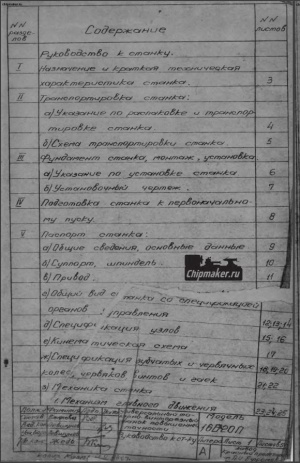 NN разде- лов
Содержание
NN листов
Руководство к станку.
I Назначение и краткая техническая
характеристика станка. 3
II Транспортировка станка:
а) Указание по распаковке и транспор-
тировке станка 4
б) Схема транспортировки станка 5
III Фундамент станка, монтаж, установка
а) Указание по установке станка 6
б) Установочный чертеж. 7
IV Подготовка станка к первоначально-
му пуску. 8
V Паспорт станка:
а) Общие сведения, основные данные 9
б) Суппорт, шпиндель. 10
в) Привод. 11
Chipmaker.ru
г) Общий вид станка со спецификацией
органов управления
д) Спецификация узлов 12,13,14
е) Кинематическая схема 15-16
ж) Спецификация зубчатых и червячных 17
колес, червяков винтов и гаек
з) Механика станка 21,22
1. Механизм главного движения 23,24,25
Модель
16Б20П
Руководство к ст-ку
А